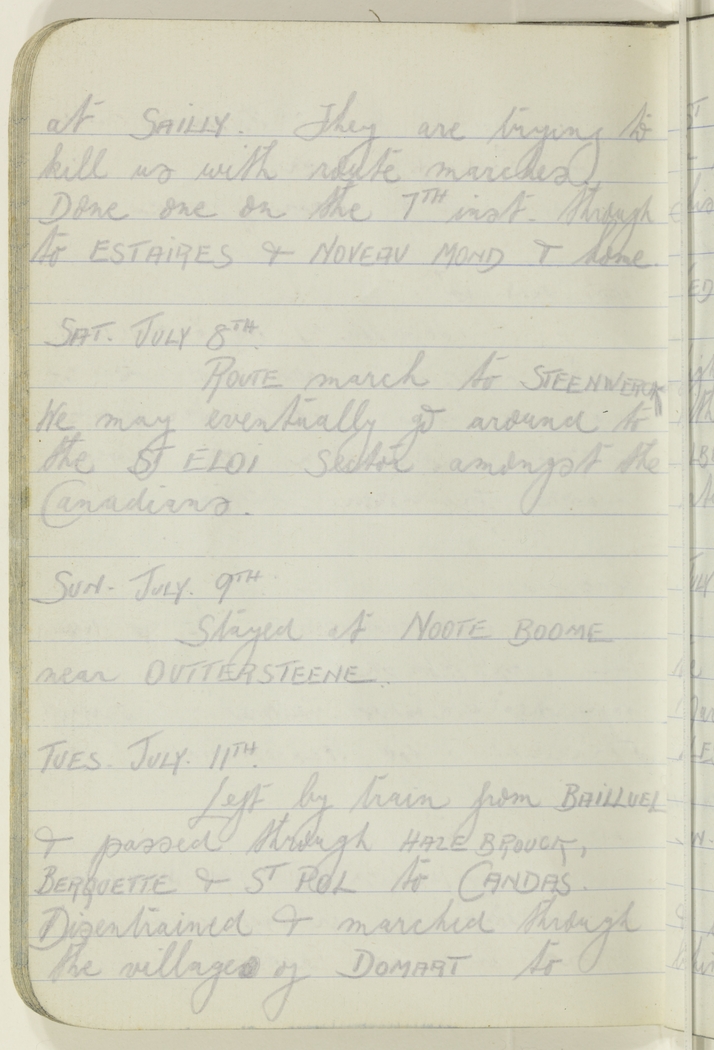 at SAILLY. They are trying to
kill us with route marches.
Done one on the 7TH inst. through
to ESTAIRES & NOVEAU MOND & home.
SAT. JULY 8TH.
ROUTE march to STEENWERCK
We may eventually go around to
the ST ELOI Sector amongst the
Canadians.
SUN. JULY. 9TH
Stayed at NOOTE BOOME
near OUTTERSTEENE.
TUES. JULY. 11TH.
Left by train from BAILLUEL
& passed through HAZEBROUCK,
BERQUETTE & ST POL to CANDAS.
Disentrained & marched through
the villages of DOMART to